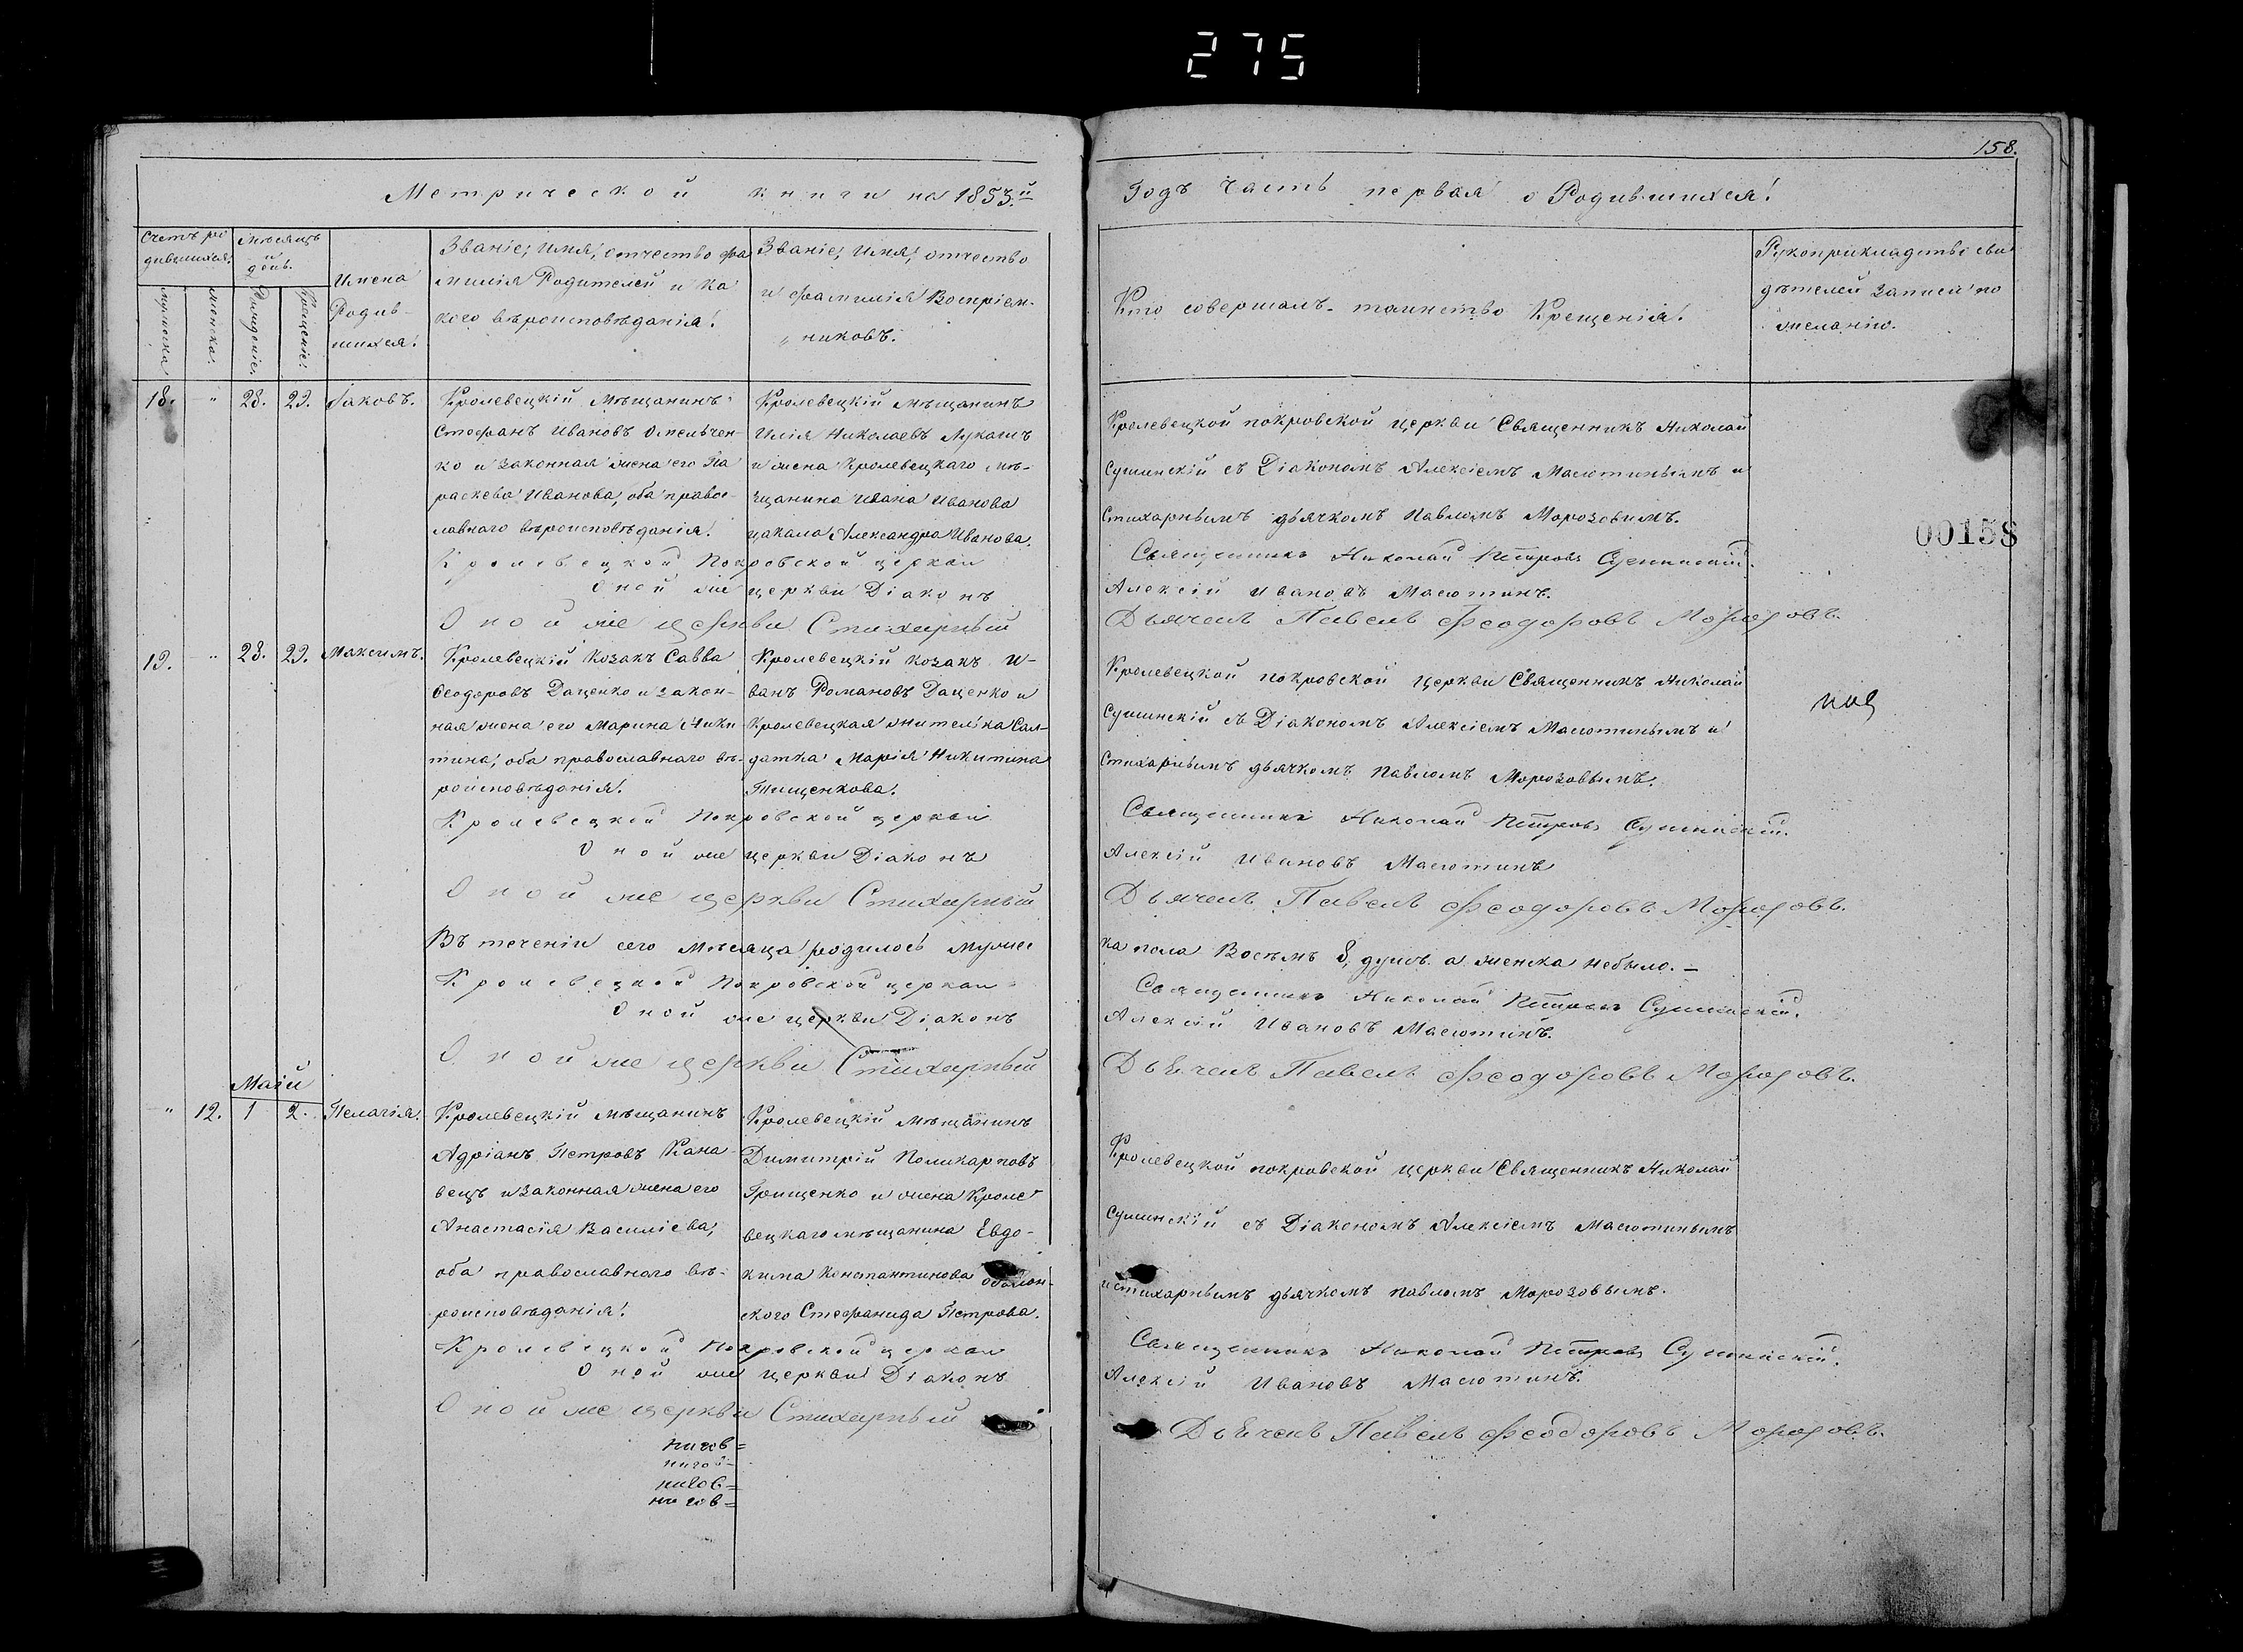 275
158.
Метрической книги на 1853.й
Годъ часть первая о Родившихся!
Счетъ ро
дившихся!
мужеска
женска.
Мѣсяцъ
и
день.
Рожденіе.
Крещеніе!
Имена
Родив-
шихся!
Званіе, имя, отчество фа
милія Родителей и ка
кого вѣроисповѣданія!
Званіе, имя, отчество
и фамилія Воспріем-
никовъ.
Кто совершалъ таинство Крещенія!
Рукоприкладство сви
дѣтелей записи по
желанію.
18. " 28. 29. Іаковъ.
Кролевецкій мѣщанинъ
Стефанъ Ивановъ Омельчен-
ко и законная жена его Па
раскева Иванова, оба право-
лавнаго вѣроисповѣданія!
Кролевецкій мѣщанинъ
Илія Николаевъ Лукашъ
и жена Кролевецкаго мѣ-
щанина Ивана Иванова
Цакала Александра Иванова.
Кролевецкой покровской церкви Священникъ Николай
Сушинскій съ Діакономъ Алексіемъ Масютинымъ и
Стихарнымъ дьячкомъ Павломъ Морозовымъ.
Кролевецкой Покровской церкви Священникъ Николай Петровъ Сушинскій.
Оной же церкви Діаконъ Алексій Ивановъ Масютинъ.
Оной же церкви Стихарный Дьячекъ Павелъ Феодоровъ Морозовъ.
00158
19. " 28. 29. Максимъ.
Кролевецкій козакъ Савва
Феодоровъ Даценко и закон-
ная жена его Марина Ники
тина, оба православнаго вѣ-
роисповѣданія!
Кролевецкій козакъ И-
ванъ Романовъ Даценко и
Кролевецкая жителька Сал-
датка Марія Никитина
Тищенкова.
Кролевецкой покровской церкви Священникъ Николай
Сушинскій съ Діакономъ Алексіемъ Масютинымъ и
Стихарнымъ дьячкомъ Павломъ Морозовымъ.
Кролевецкой Покровской церкви Священникъ Николай Петровъ Сушинскій.
Оной же церкви Діаконъ Алексій Ивановъ Масютинъ
Оной же церкви Стихарный Дьячекъ Павелъ Феодоровъ Морозовъ.
Въ теченіи сего Мѣсяца родилось мужес ка пола Восѣмъ 8, душъ. а женска небыло. —
Кролевецкой Покровской церкви Священникъ Николай Петровъ Сушинскій.
Оной же церкви Діаконъ Алексій Ивановъ Масютинъ.
Оной же церкви Стихарный Дьячекъ Павелъ Феодоровъ Морозовъ.
Маій
" 12. 1 2. Пелагія.
Кролевецкій мѣщанинъ
Адріанъ Петровъ Кана-
вецъ и законная жена его
Анастасія Василіева,
оба православнаго вѣ-
роисповѣданія!
Кролевецкій мѣщанинъ
Димитрій Поликарповъ
Грищенко и жена Кроле-
вецкаго мѣщанина Евдо-
кима Константинова Оболон-
ского Стефанида Петрова.
Кролевецкой покровской церкви Священникъ Николай
Сушинскій съ Діакономъ Алексіемъ Масютинымъ
и стихарнымъ дьячкомъ Павломъ Морозовымъ.
Кролевецкой Покровской церкви Священникъ Николай Петровъ Сушинскій.
Оной же церкви Діаконъ Алексій Ивановъ Масютинъ.
Оной же церкви Стихарный Дьячекъ Павелъ Феодоровъ Морозовъ.